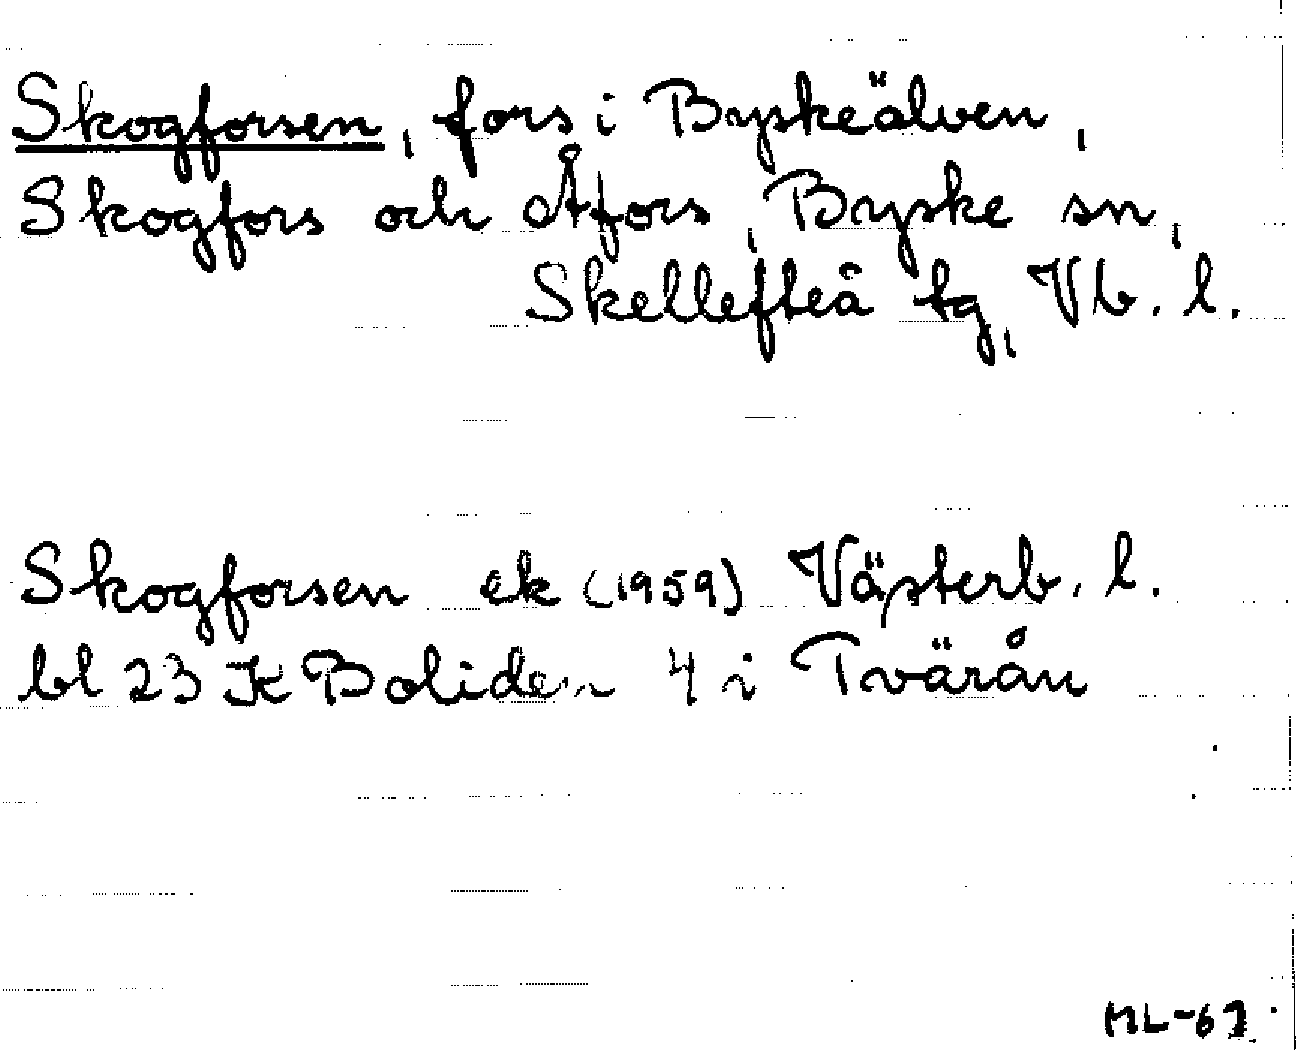 Skogforsen, fors i Byskeälven,
Skogfors och Åfors, Byske sn,
Skellefteå tg, Vb. l.
Skogforsen ek (1959) Västerb. l.
bl 23 K Boliden 4 i Tvärån